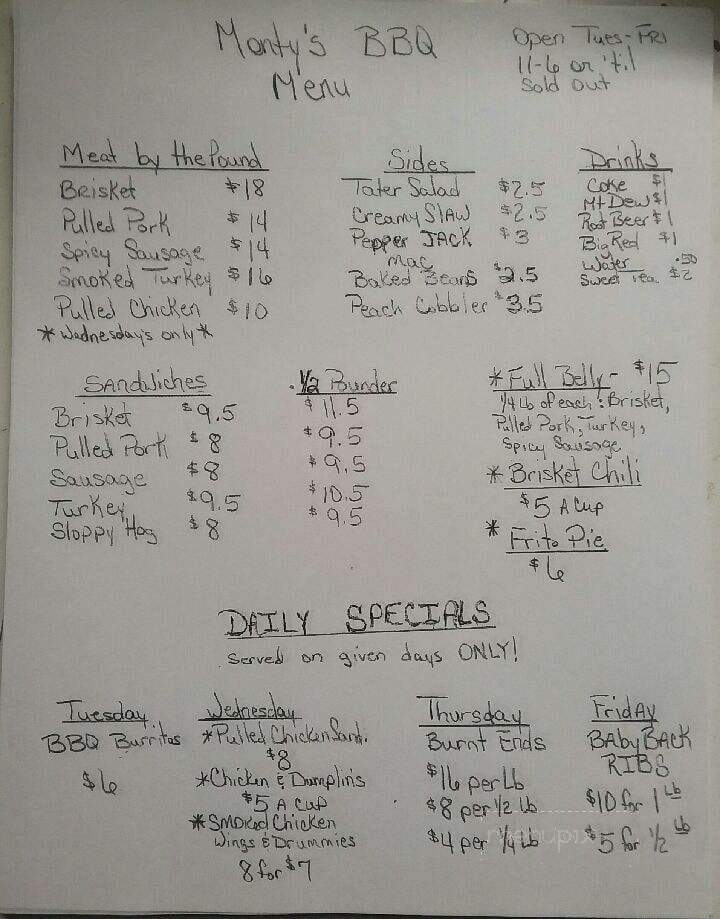 Monty's BBQ
Menu
Open Tues-FRI
11-6 or 'til
Sold Out
Meat by the Pound
Brisket $18
Pulled Pork $14
Spicy Sausage $14
Smoked Turkey $16
Pulled Chicken $10
*Wednesday's only*
Sides
Tater Salad $2.5
Creamy Slaw $2.5
Pepper JACK $3
Mac
Baked Beans $2.5
Peach Cobbler $3.5
Drinks
Coke $1
Mt Dew $1
Root Beer $1
Big Red $1
Water .50
Sweet Tea $2
Sandwiches
Brisket $9.5
Pulled Pork $8
Sausage $8
Turkey $9.5
Sloppy Hog $8
. 1/2 Pounder
$11.5
$9.5
$9.5
$10.5
$9.5
*Full Belly - $15
1/4 Lb of each: Brisket,
Pulled Pork, Turkey,
Spicy Sausage
*Brisket Chili
$5 A Cup
* Frito Pie
$6
DAILY SPECIALS
Served on given days ONLY!
Tuesday
BBQ Burritos
$6
Wednesday
*Pulled Chicken Sand.
$8
*Chicken & Dumplins
$5 A Cup
*Smoked Chicken
Wings & Drummies
8 for $7
Thursday
Burnt Ends
$16 per Lb
$8 per 1/2 Lb
$4 per 1/4 Lb
FridAy
BAby BACK
RIBS
$10 for 1 Lb
$5 for 1/2 Lb